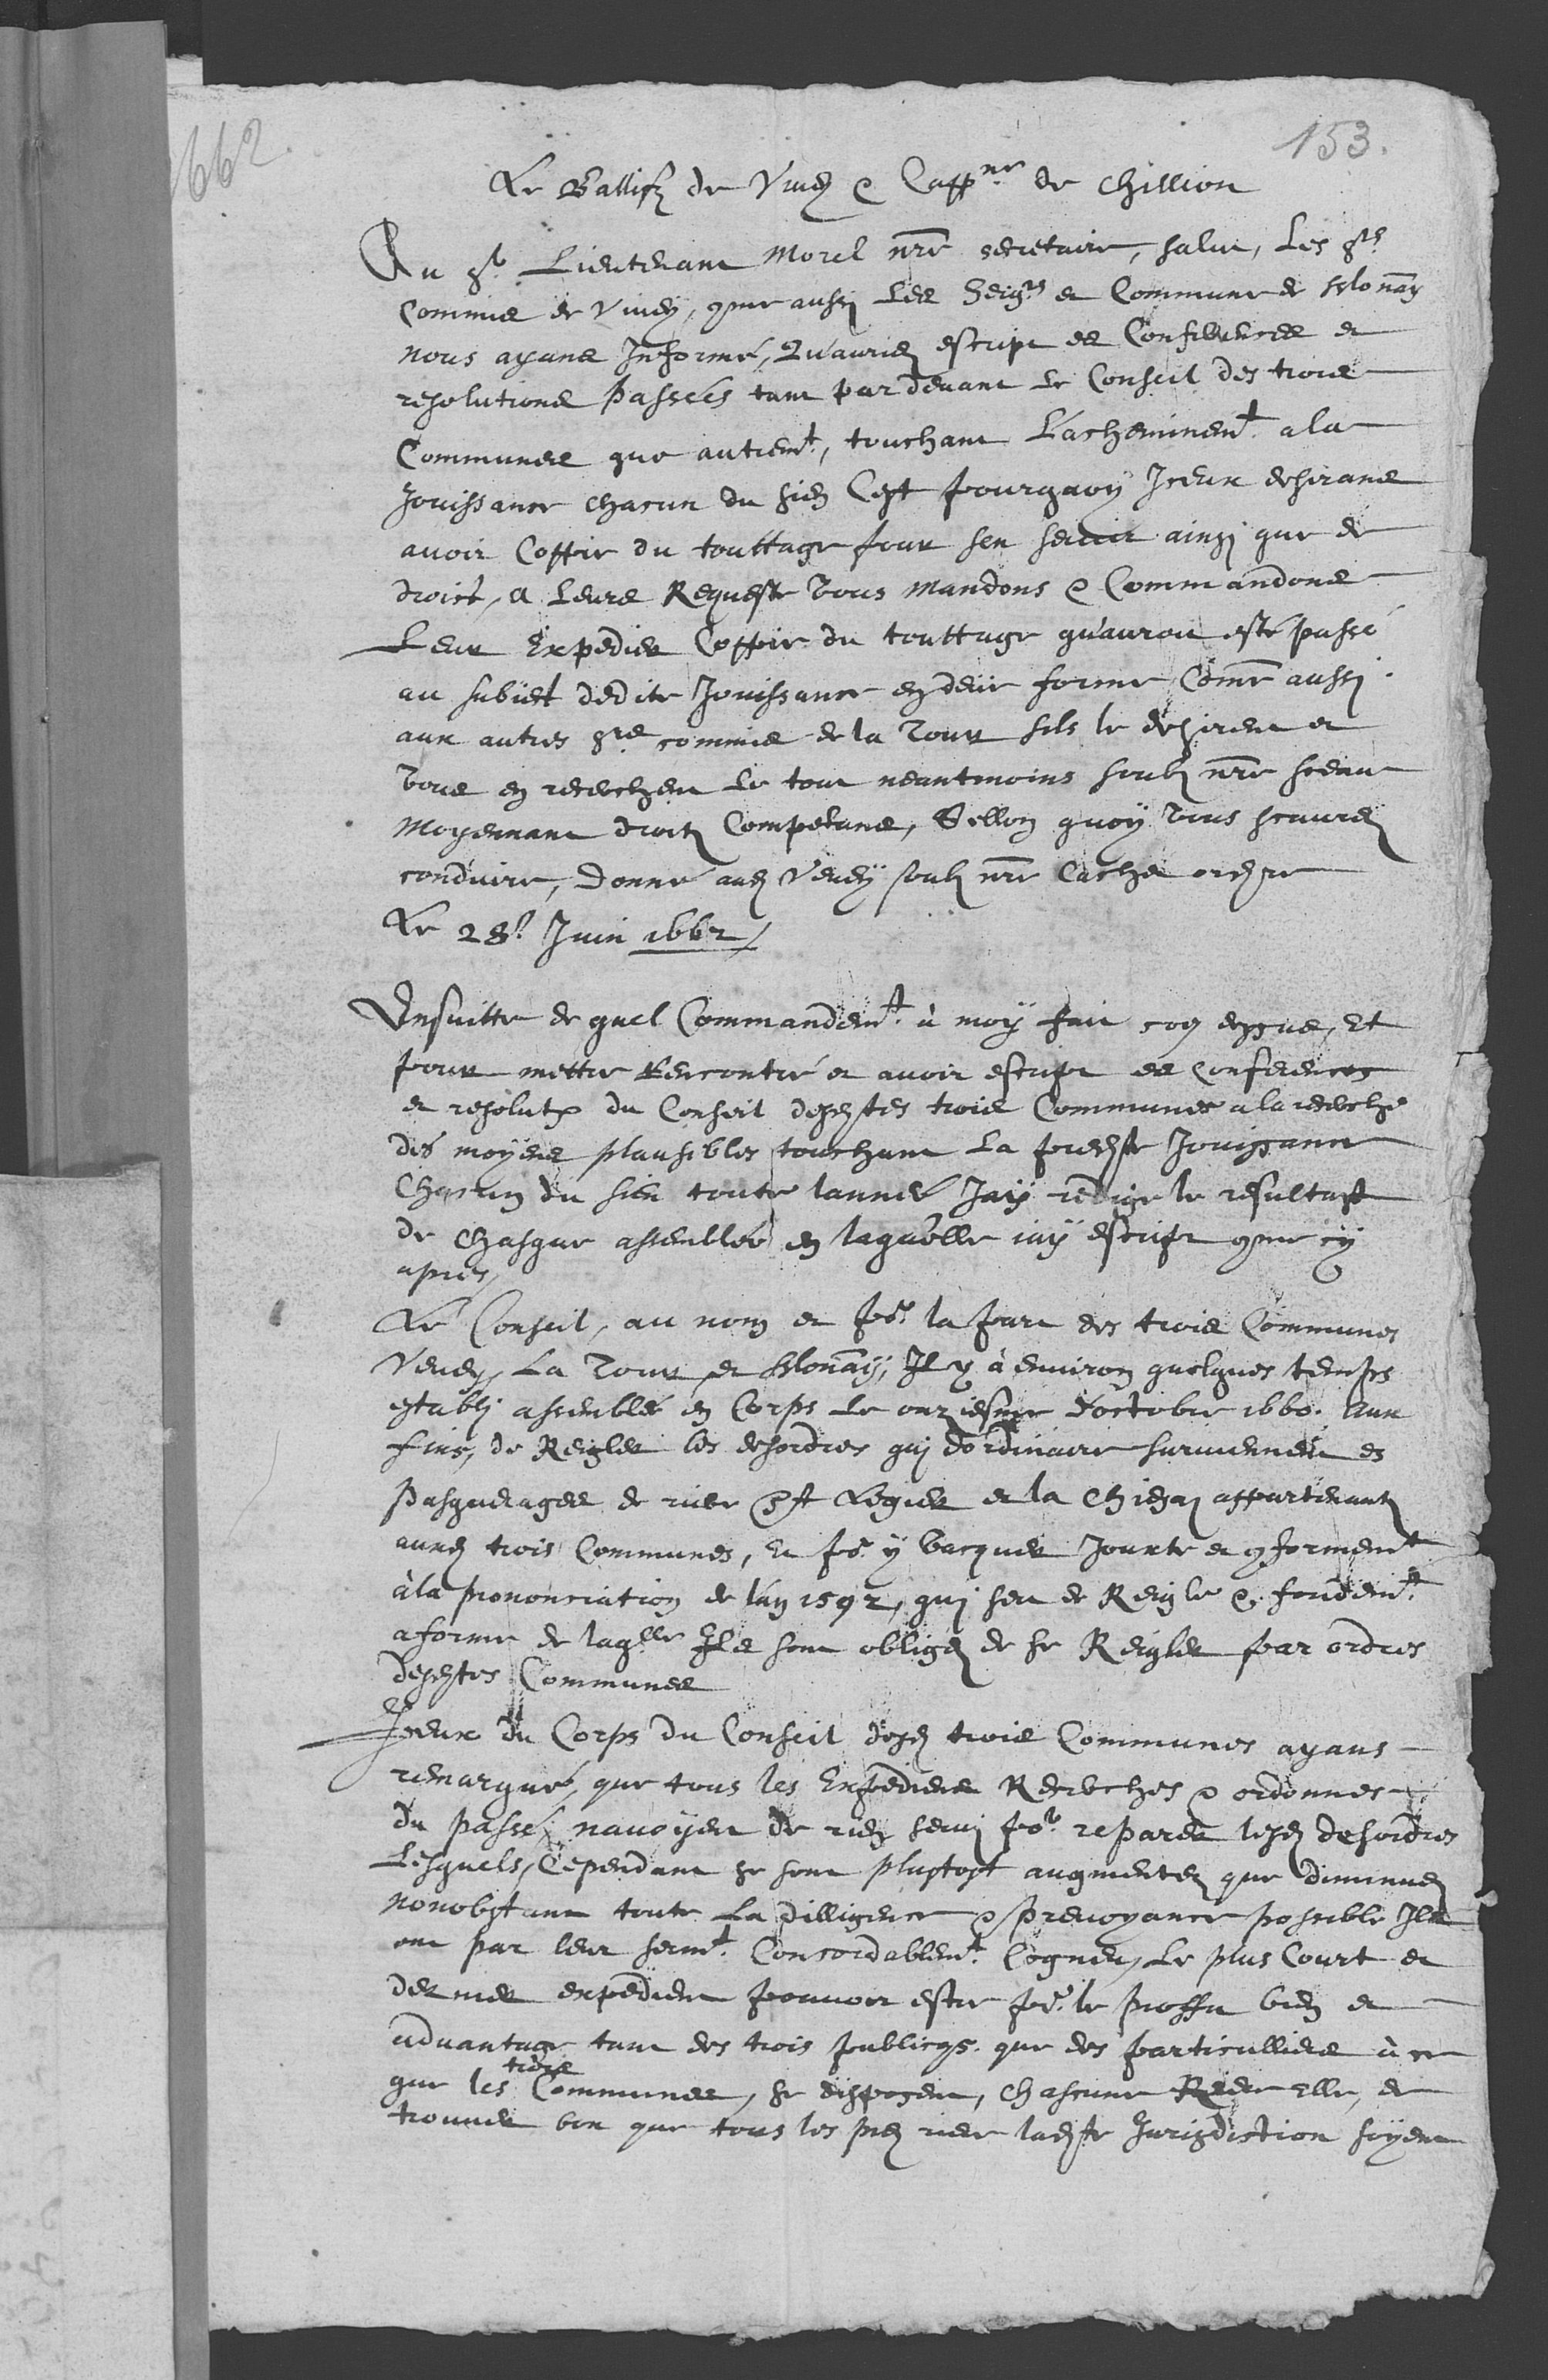 1662
153.
Le Ballifz de Vivey & Capp.ne de Chillion
Au Sr. Lieutenant Morel nre secretaire, salut, Les Srs
Commis de Vivey, comme aussi Les Seigrs et Commune de Blonay
nous ayans Informé, Qu'auriez escript es Conferences et
resolutions Passées tant par devant Le Conseil des trois
Communes que autremt, touchant L'acheminemt a la
Jouissance chacun du sien C'est pourquoy Iceux desirans
avoir Coppie du touttage pour sen servir ainsi que de
droict, A leurs Requeste vous Mandons & Commandons
Leur Expedier Coppie du touttage qu'auroit esté passé
au subiect dedite Jouissance en deüe forme Come aussi
aux autres Srs commis de la Tour sils le desirent et
vous en recerchent Le tout neantmoins soubz nre sceau
Moyennant droitz Competans, Sellon quoy vous scaurez
conduire, Donné audt Vevey soubz nre Cachet ordre
Le 28.e Juin 1662
Ensuitte de quel Commandemt. à moy fait coe dessus, Et
pour mettre Rencontré et avoir escript es Conferences
et resolutx du Conseil desdtes trois Communes a la recerche
des moyens plausibles touchant La predte Jouissance
Chacun du sien toute lannée Jay redigé le resultapt
de Chasque assemblée en laquelle iay escript comme cy
apres,
Le Conseil, au nom et pr. la part des trois Communes
Vevey, La Tour et Blonay, Il y à environ quelques temps
establi assemblé en Corps Le onziesme d'octobre 1660. Aux
fins, de Regler les desordres qui d'ordinaire surviennent es
Pasquerages de riere Legier et la Chiesaz appartenantz
auxdt trois Communes, Et pr. y vacquer Jouxte et conformemt
à la prononciation de l'an 1592, qui sert de Reigle & fondemt.
a forme de laqlle Ils sont obligez de se Reigler par ordres
desdtes Communes
Iceux du Corps du Conseil desdt trois Communes ayans
remarqué, que tous les Expediens Recerches & ordonnes
du passé, navoyent de rien servi pr. reparer lesdt desordres
Lesquels, Cependant se sont plustost augmentez que diminuez
Nonobstant toute La dilligence & Prevoyance possible Ils
ont par leur sermt. Concordablemt. Cogneu, Le plus Court et
dernier expedient pouvoir estre pr. le proffit bien et
advantage tant des trois publicqs. que des particulliers à ce
que les trois Communes, se disposent, Chascune Riere Elle, de
trouver bon que tous les prez riere ladte Jurisdiction soyent